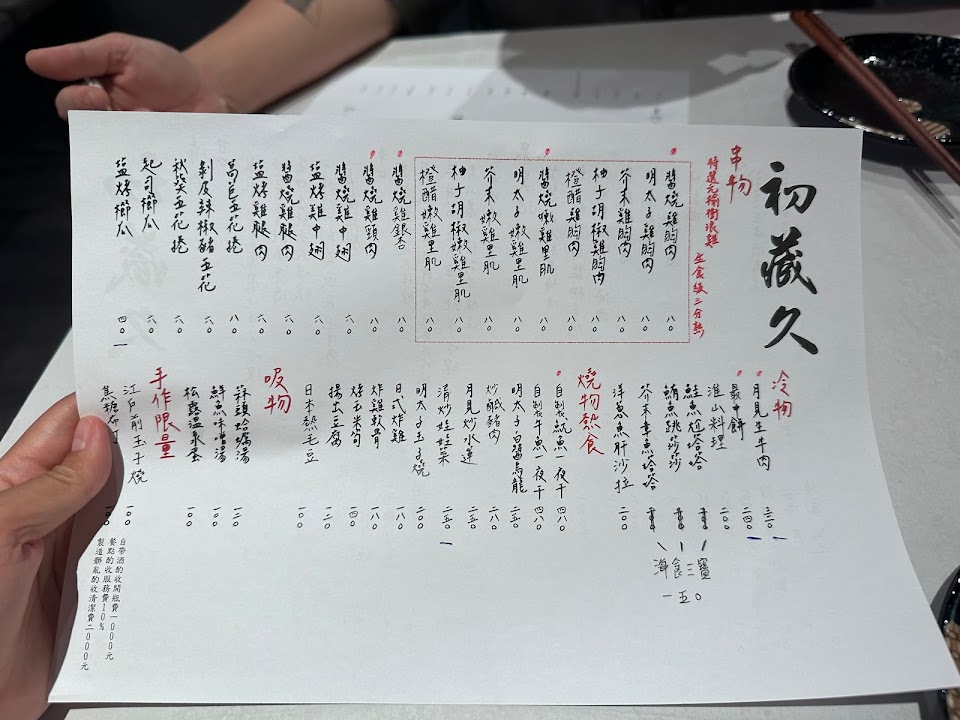 初藏久
串物
特選元榆衝浪雞 生食級三分熟
醬燒雞胸肉 八〇
明太子雞胸肉 八〇
芥末雞胸肉 八〇
柚子胡椒雞胸肉 八〇
橙醋雞胸肉 八〇
醬燒嫩雞里肌 八〇
明太子嫩雞里肌 八〇
芥末嫩雞里肌 八〇
柚子胡椒嫩雞里肌 八〇
橙醋嫩雞里肌 八〇
醬燒雞銀杏 八〇
醬燒雞頭肉 八〇
醬燒雞中翅 六〇
塩烤雞中翅 六〇
醬燒雞腿肉 六〇
塩烤雞腿肉 六〇
萵苣五花捲 八〇
剝皮辣椒豬五花 六〇
秋葵五花捲 六〇
起司櫛瓜 六〇
塩烤櫛瓜 四〇
冷物
月見生牛肉 三二〇
最中餅 二四〇
淮山料理 二〇〇
鮭魚尬塔塔
鮪魚跳莎莎
芥末章魚塔塔
海食三寶
一五〇
洋蔥魚肝沙拉 二〇〇
燒物熱食
自製魷魚一夜干 四八〇
自製午魚一夜干 四八〇
明太子白醬烏龍 二五〇
炒鹹豬肉 二八〇
月見炒水蓮 二二〇
清炒娃娃菜 二五〇
明太子玉子燒 二〇〇
日式炸雞 一八〇
炸雞軟骨 一八〇
烤玉米筍 一四〇
揚出豆腐 一二〇
日本熱毛豆 一〇〇
吸物
蒜頭蛤蠣湯 一二〇
鮮魚味噌湯 一〇〇
松露溫泉蛋 一〇〇
手作限量
江戶前玉子燒 一〇〇
焦糖布丁 一〇〇
自帶酒酌收開瓶費一000元
餐點酌收服務費10%
製造髒亂酌收清潔費二000元